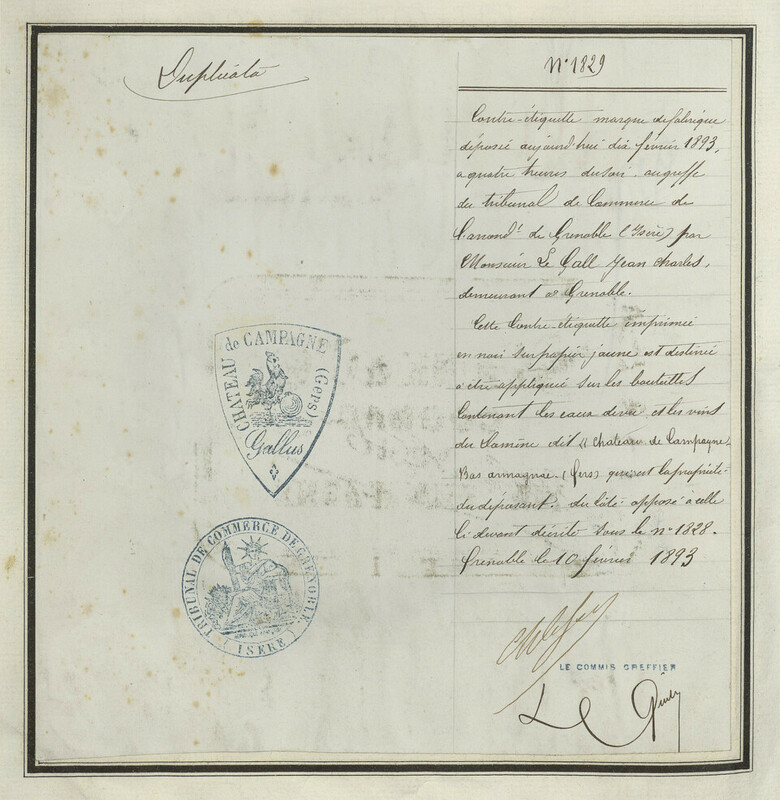 Duplicata
N° 1829
Contre-étiquette marque de fabrique
déposée aujourd'hui dix février 1893,
a quatre heures du soir. au greffe
du tribunal de Commerce de
l'arrond.t de Grenoble (Isère) par
Monsieur Le Gall Jean Charles,
demeurant à Grenoble.
Cette Contre-étiquette imprimée
en noir sur papier jaune est destinée
a être appliquée sur les bouteilles
Contenant les eaux de vie et les vins
du Domaine dit "Château de Campagne,
Bas armagnac. (Gers) qui est la propriété
du déposant. du côté opposé à celle
Ci devant décrite sous le n° 1828.
Grenoble le 10 février 1893
CHATEAU de CAMPAGNE (Gers)
Gallus
TRIBUNAL DE COMMERCE DE GRENOBLE
(ISERE)
LE COMMIS GREFFIER